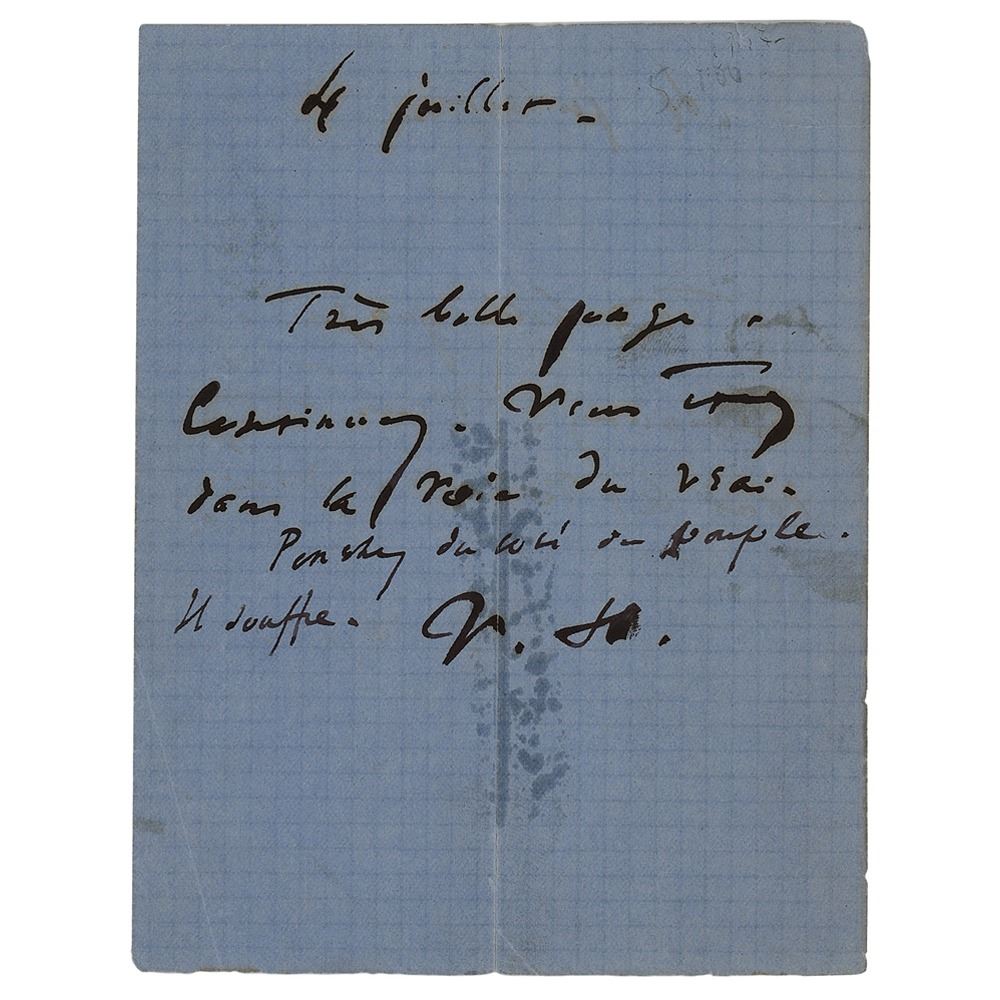 4 juillet.
Très belle page.
Continuez. Vous êtes
dans la voie du vrai.
Penchez du côté du peuple.
Il souffre. V. H.